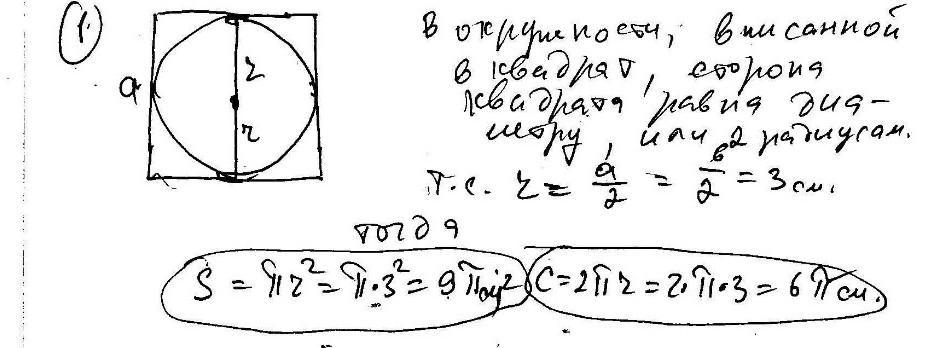 1.
a
r
r
В окружности, вписанной
в квадрат, сторона
квадрата равна диа-
метру, или 2 радиусам.
т.е. r = a/2 = 6/2 = 3 см.
тогда
S = πr² = π·3² = 9π см² C = 2πr = 2·π·3 = 6π см.